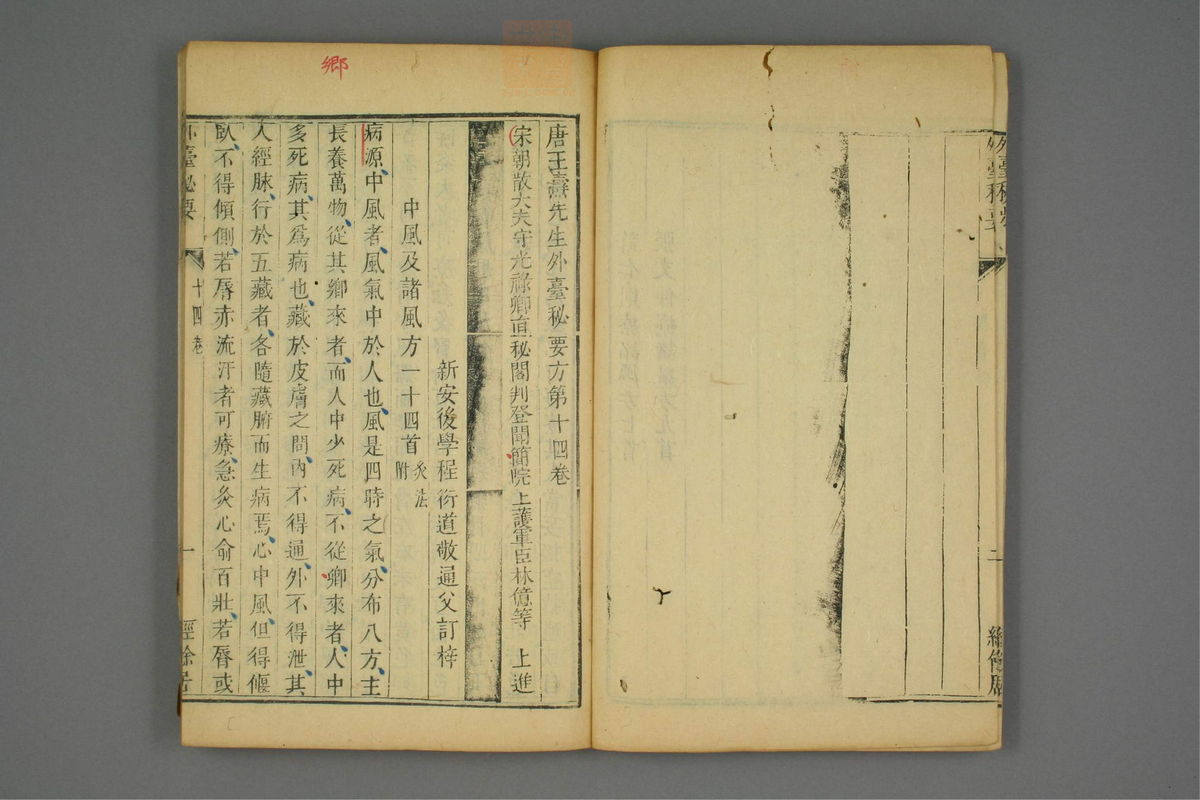 外臺秘要
二
鄉
唐王燾先生外臺秘要方第十四卷
宋朝散大夫守光祿卿直秘閣判登聞簡院上護軍臣林億等 上進
新安後學程衍道敬通父訂梓
中風及諸風方一十四首 灸法附
病源中風者、風氣中於人也、風是四時之氣、分布八方、主
長養萬物、從其鄉來者、而人中少死病、不從鄉來者、人中
多死病、其爲病也、藏於皮膚之間、內不得通、外不得泄、其
入經脉、行於五藏者、各隨藏腑而生病焉、心中風、但得偃
臥、不得傾側、若脣赤流汗者可療、急灸心俞百壯、若脣或
外臺秘要
十四卷
一
經餘居